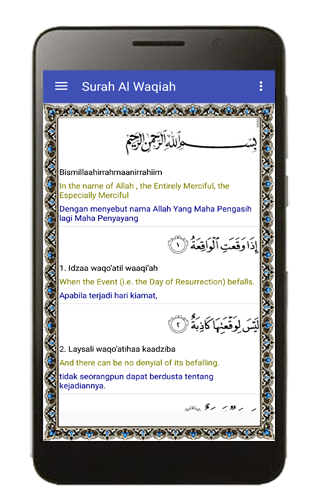 Surah Al Waqiah
بِسْمِ اللَّهِ الرَّحْمَٰنِ الرَّحِيمِ
Bismillaahirrahmaanirrahiim
In the name of Allah , the Entirely Merciful, the
Especially Merciful
Dengan menyebut nama Allah Yang Maha Pengasih
lagi Maha Penyayang
إِذَا وَقَعَتِ ٱلْوَاقِعَةُ ١
1. Idzaa waqo'atil waaqi'ah
When the Event (i.e. the Day of Resurrection) befalls.
Apabila terjadi hari kiamat,
لَيْسَ لِوَقْعَتِهَا كَاذِبَةٌ ٢
2. Laysali waqo'atihaa kaadziba
And there can be no denyial of its befalling.
tidak seorangpun dapat berdusta tentang
kejadiannya.